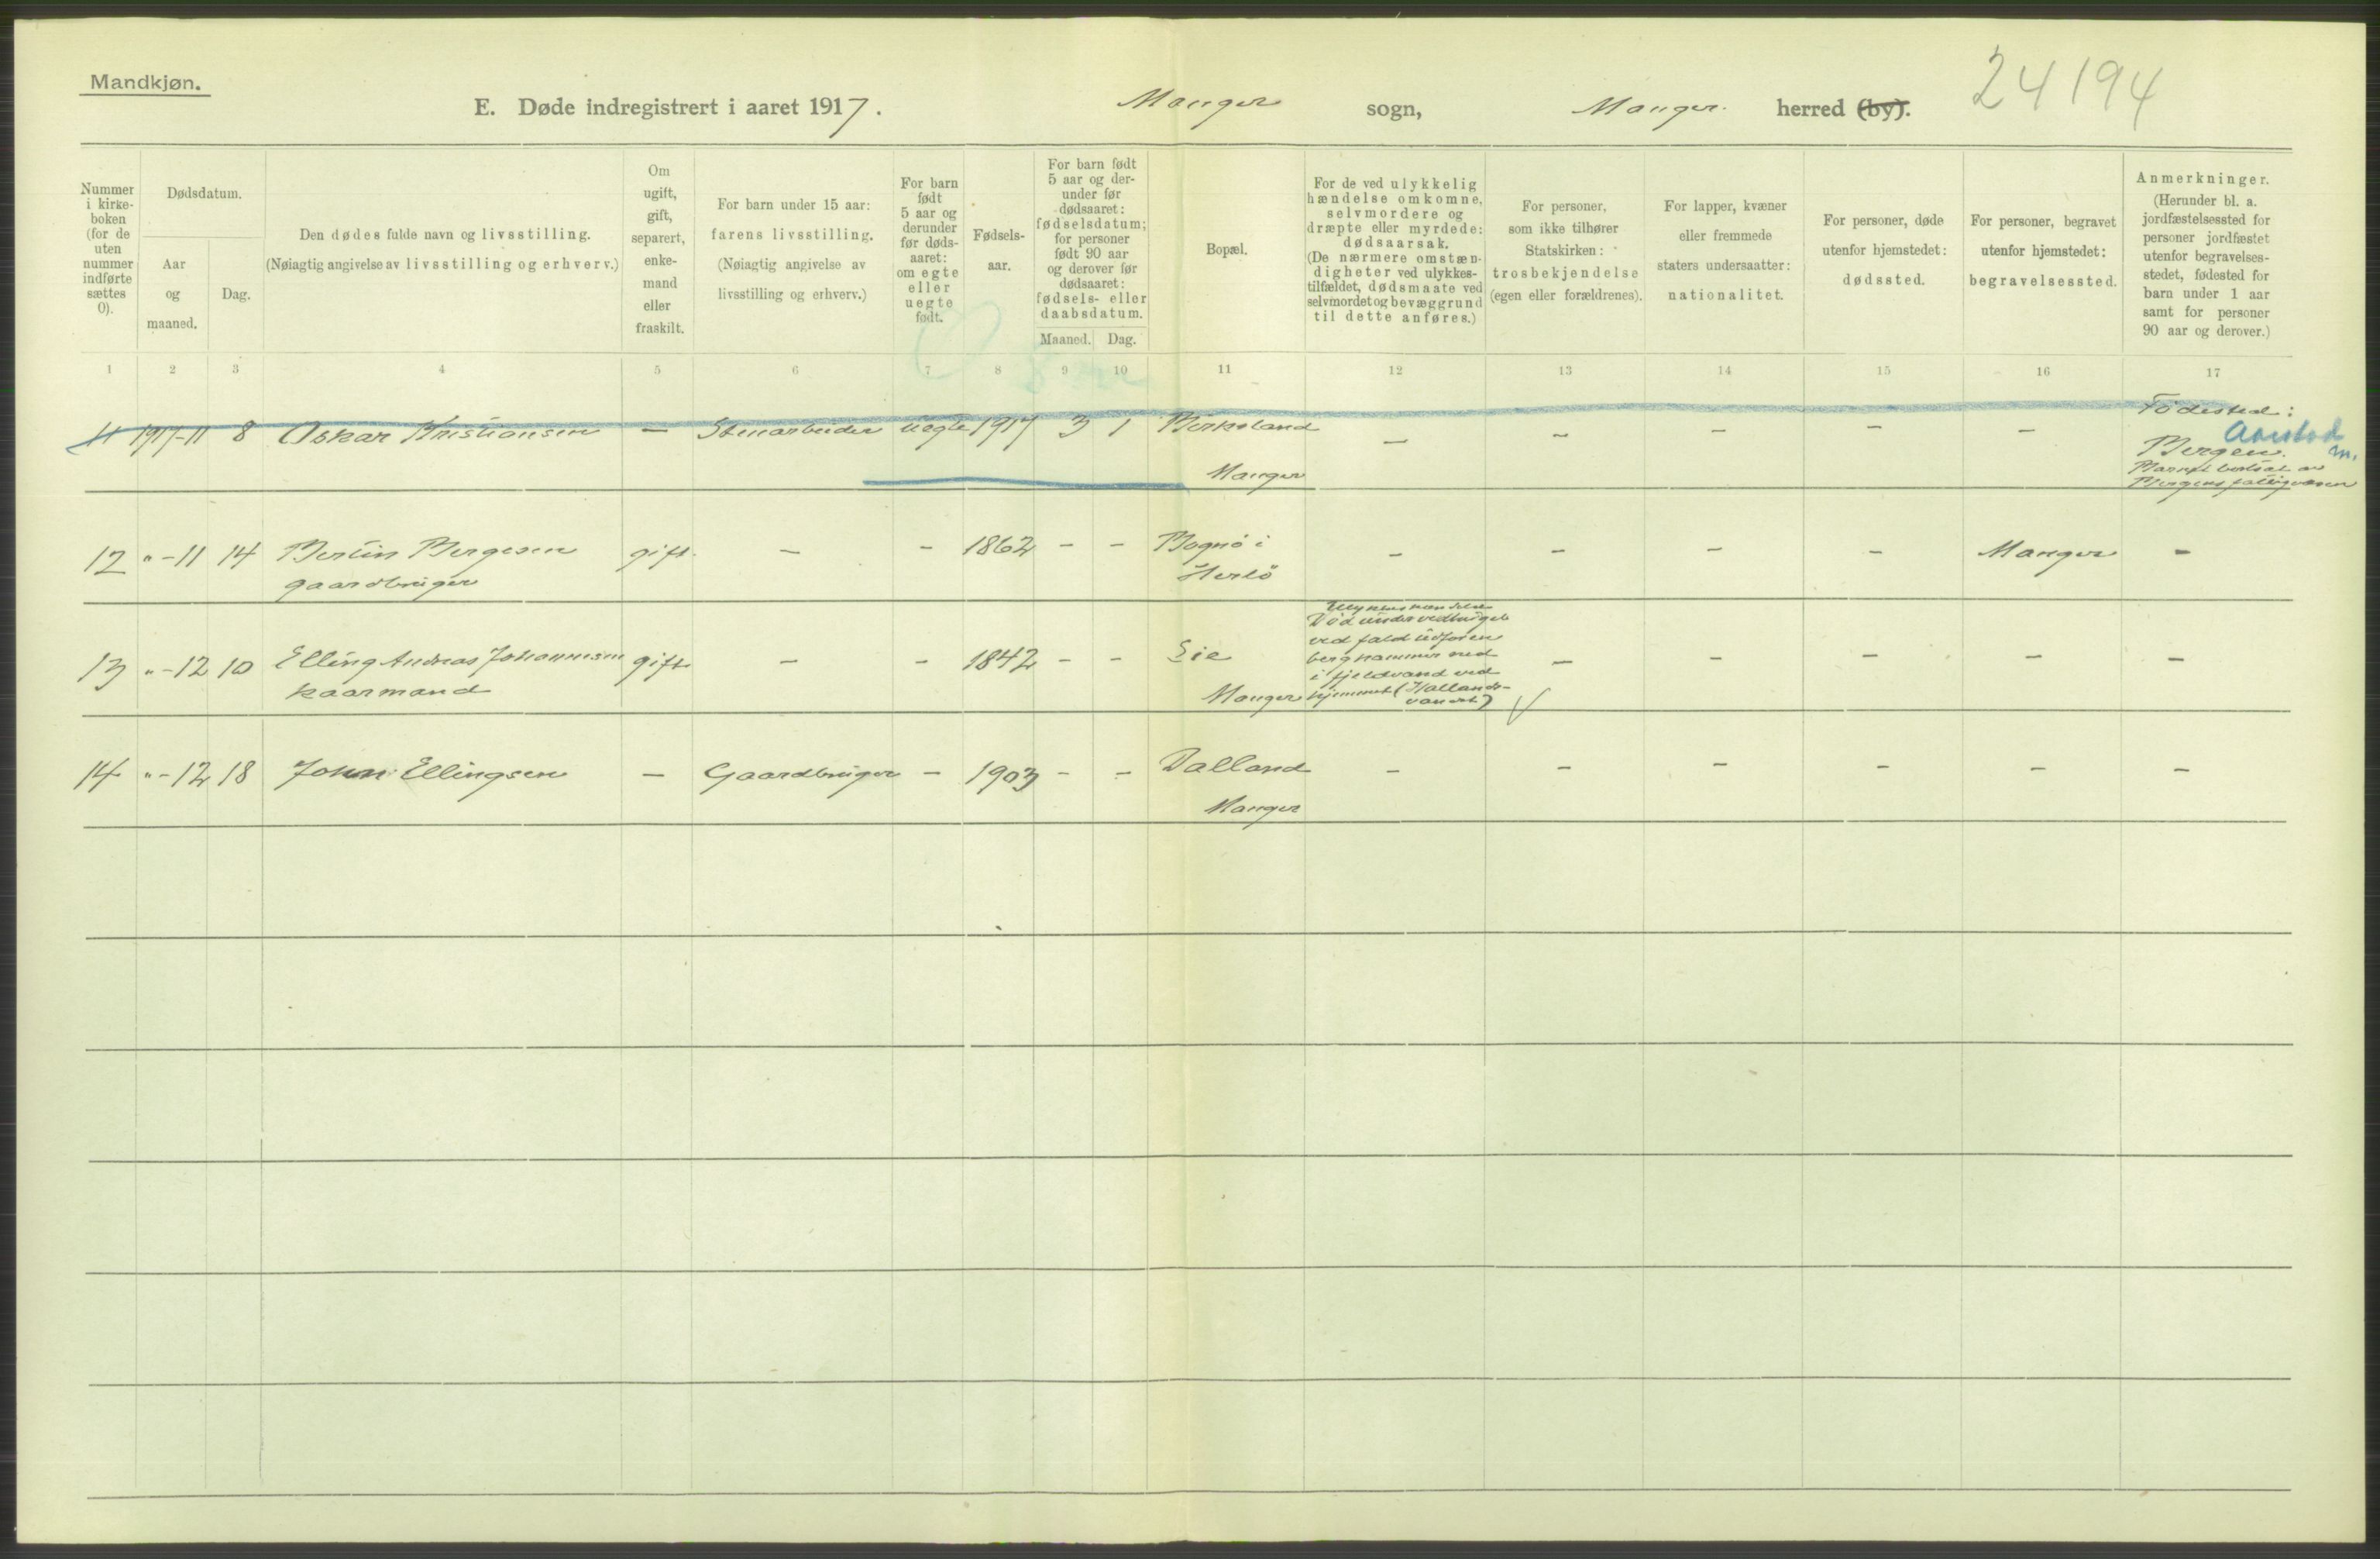 Mandkjøn.
E. Døde indregistrert i aaret 1917. Manger sogn, Manger. herred (by).
24194
Nummer i kirke-boken (for de uten nummer indførte sættes 0).
Dødsdatum.
Aar og maaned.
Dag.
Den dødes fulde navn og livsstilling.
(Nøiagtig angivelse av livsstilling og erhverv.)
Om ugift, gift, separert, enke-mand eller fraskilt.
For barn under 15 aar: farens livsstilling. (Nøiagtig angivelse av livsstilling og erhverv.)
For barn født 5 aar og derunder før døds-aaret: om egte eller uegte født.
Fødsels-aar.
For barn født 5 aar og der-under før dødsaaret: fødselsdatum; for personer født 90 aar og derover før dødsaaret: fødsels- eller daabsdatum.
Maaned. Dag.
Bopæl.
For de ved ulykkelig hændelse omkomne, selvmordere og dræpte eller myrdede: dødsaarsak. (De nærmere omstæn-digheter ved ulykkes-tilfældet, dødsmaate ved selvmordet og bevæggrund til dette anføres.)
For personer, som ikke tilhører Statskirken: trosbekjendelse (egen eller forældrenes).
For lapper, kvæner eller fremmede staters undersaatter: nationalitet.
For personer, døde utenfor hjemstedet: dødssted.
For personer, begravet utenfor hjemstedet: begravelsessted.
Anmerkninger. (Herunder bl. a. jordfæstelsessted for personer jordfæstet utenfor begravelses-stedet, fødested for barn under 1 aar samt for personer 90 aar og derover.)
1 2 3 4 5 6 7 8 9 10 11 12 13 14 15 16 17
11 1917-11 8 Oskar Kristiansen — Stenarbeider uegte 1917 3 1 Birkeland — — — — — Fødested:
Aarstad
Manger Bergen. m.
Barnet bortsat av
Bergens fattigvæsen
12 "-11 14 Bertin Bergesen gift. — — 1862 — — Bognö i — — — — Manger —
gaardbruger Herlö
Ulykkeshændelse
Död under vedhugst
ved fald utfor en
13 "-12 10 Elling Andreas Johannesen gift — — 1842 — — Lie berghammer ned — — — — —
i fjeldvand ved
kaarmand Manger hjemmet (Hallands-
vandet) √
14 "-12 18 John Ellingsen — Gaardbruger — 1903 — — Dalland — — — — — —
Manger